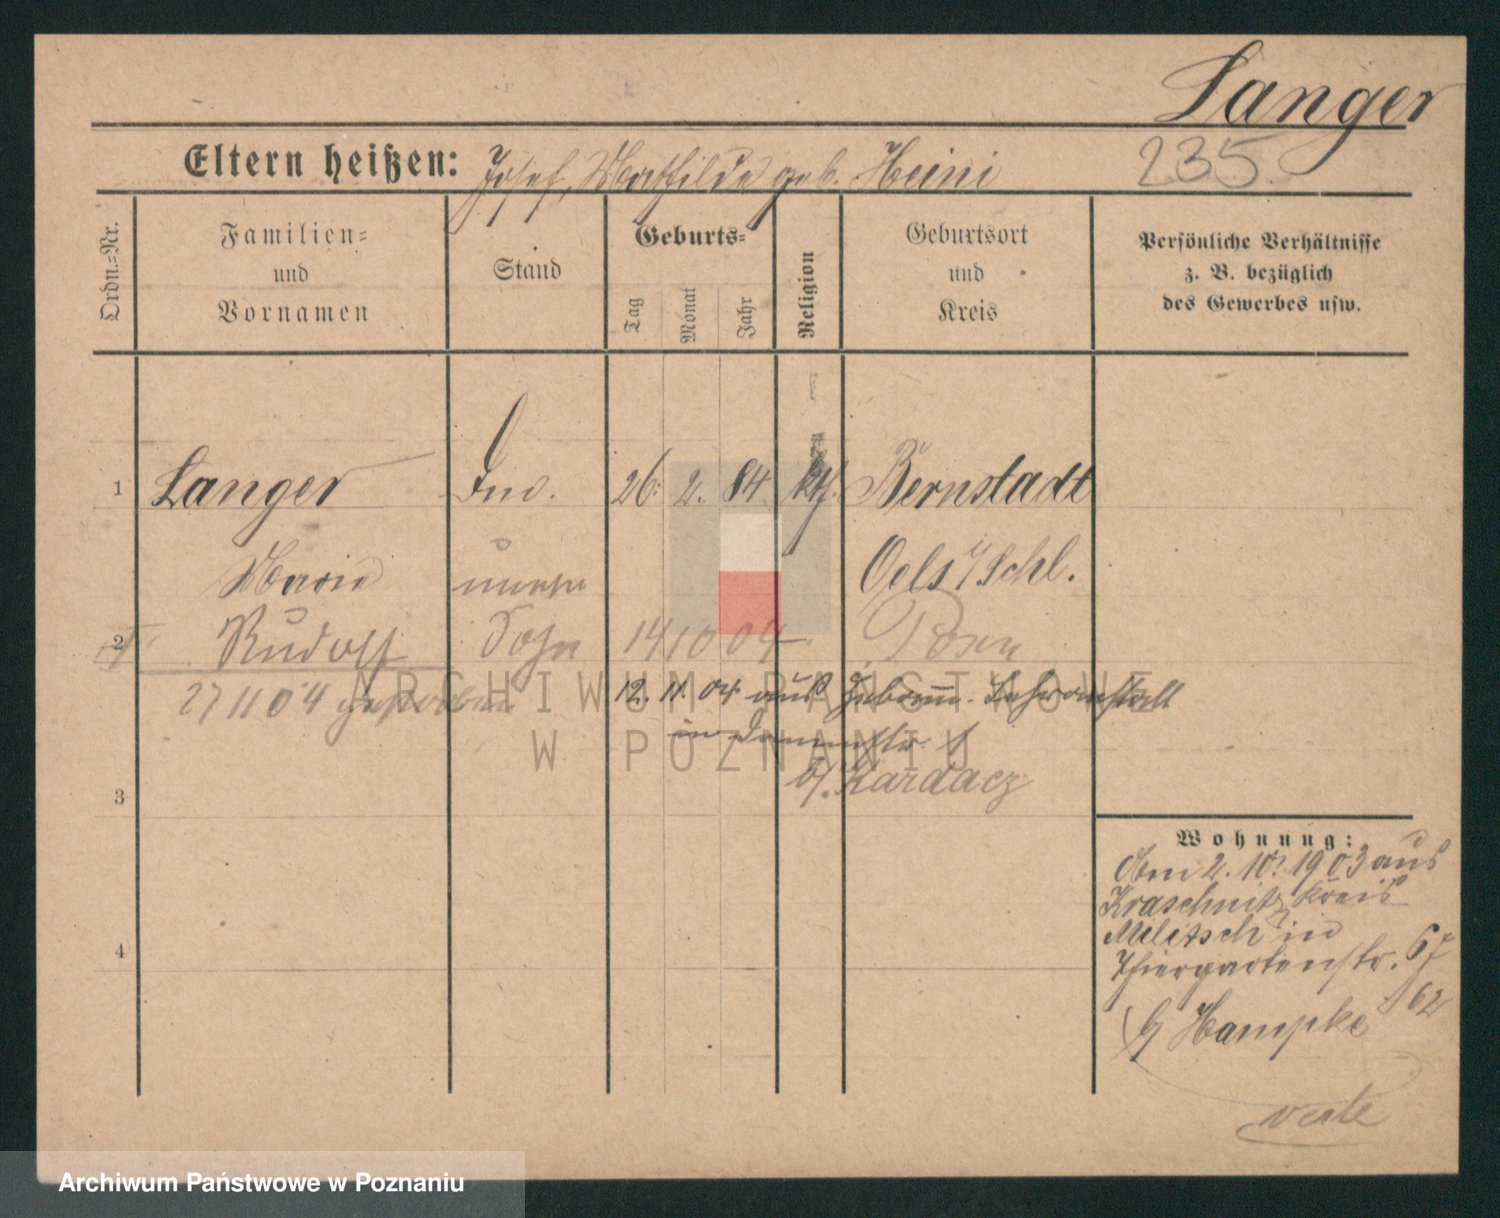 Langer
Eltern heißen: Josef, Mathilde geb. Heini 235
Ordn.=Nr.
Familien=
und
Vornamen
Stand
Geburts=
Tag
Monat
Jahr
Religion
Geburtsort
und
Kreis
Persönliche Verhältnisse
z. B. bezüglich
des Gewerbes usw.
1 Langer 26. 2. 84 Bernstadt
Marie Oels i/Schl.
2 Rudolf Sohn 14 10 04 Posen
27 11 04 gestorben 12. 11. 04 aus
in
b/. Kardacz
3
4
Wohnung:
Am 2. 10. 1903 aus
Kraschnitz Kreis
Militsch in
Thiergartenstr. 67
62
b/ Hampke
ARCHIWUM PAŃSTWOWE
W POZNANIU
Archiwum Państwowe w Poznaniu